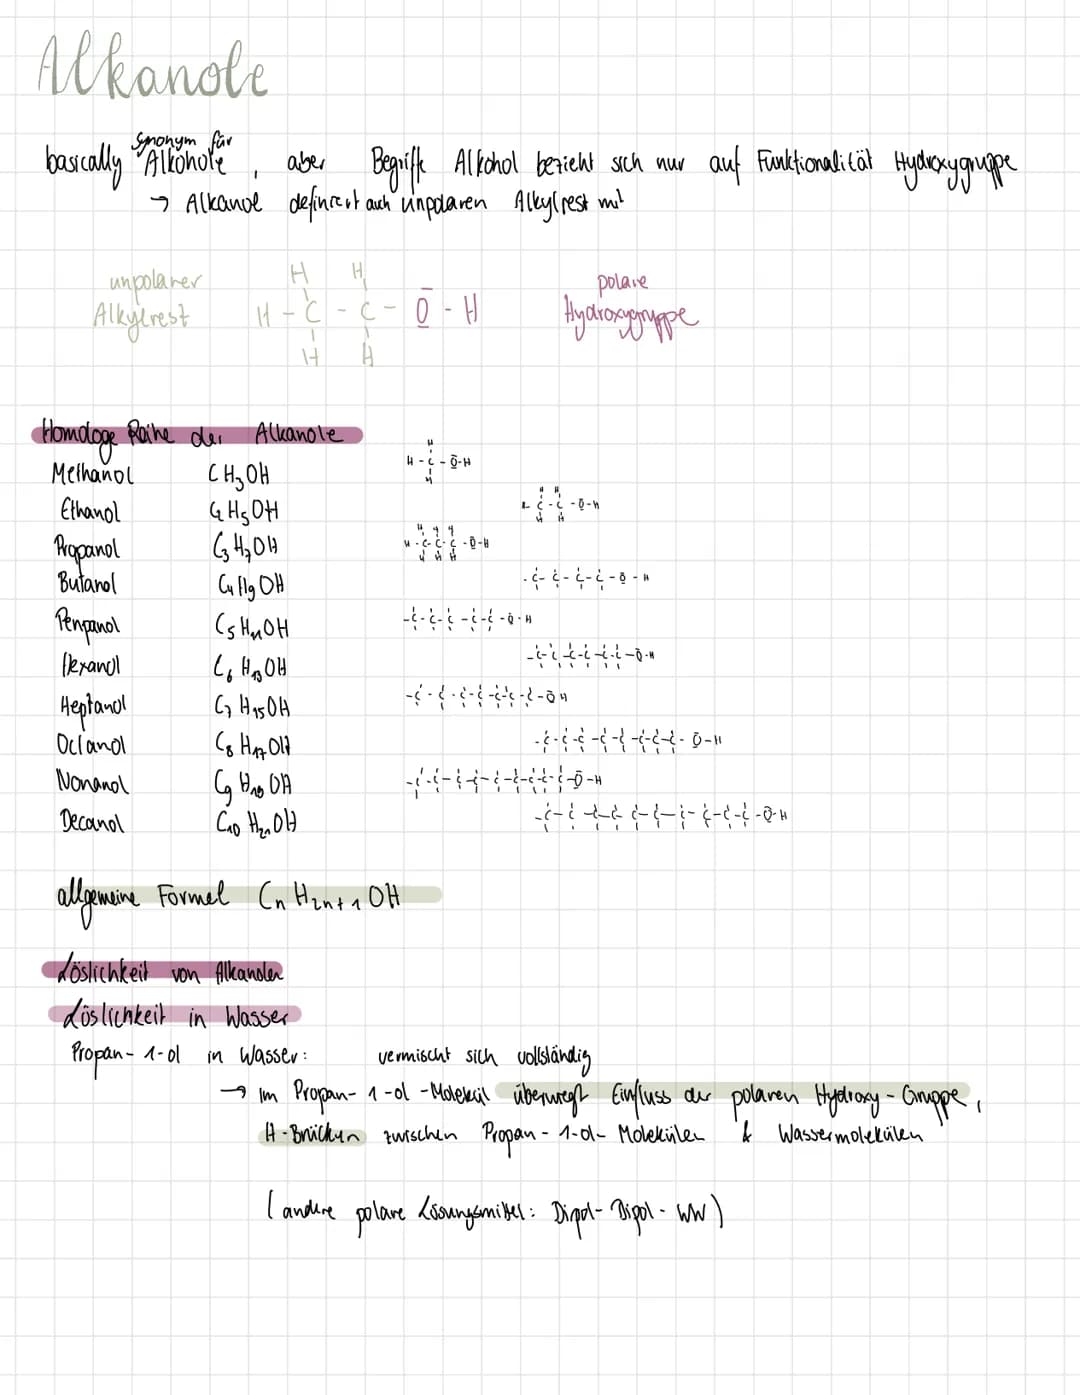 Alkanole
Synonym für
basically Alkohole, aber Begriffe Alkohol bezieht sich nur auf Funktionalität Hydroxygruppe
→ Alkanol definiert auch unpolaren Alkylrest mit
unpolarer
Alkylrest
H H
H - C - C - O - H
H H
polare
Hydroxygruppe
Homologe Reihe der Alkanole
Methanol CH3OH
Ethanol C2H5OH
Propanol C3H7OH
Butanol C4H9OH
Penpanol C5H11OH
Hexanol C6H13OH
Heptanol C7H15OH
Octanol C8H17OH
Nonanol C9H19OH
Decanol C10H21OH
allgemeine Formel CnH2n+1OH
Löslichkeit von Alkanolen
Löslichkeit in Wasser
Propan-1-ol in Wasser: vermischt sich vollständig
→ Im Propan-1-ol-Molekül überwiegt Einfluss der polaren Hydroxy-Gruppe,
H-Brücken zwischen Propan-1-ol-Molekülen & Wassermolekülen
(andere polare Lösungsmittel: Dipol-Dipol-WW)